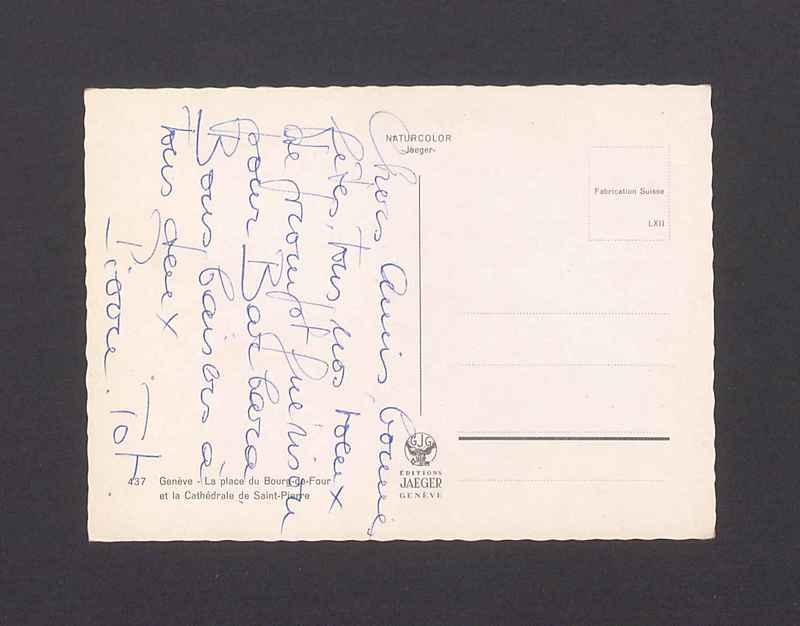 NATURCOLOR
Jaeger-
Fabrication Suisse
LXII
Chers Amis, bonnes
fêtes, tous nos voeux
de prompt guérison
pour Barbara
Bons baisers à
tous deux
Pierre. Tot
GJG
ÉDITIONS
JAEGER
GENÈVE
437 Genève - La place du Bourg-de-Four
et la Cathédrale de Saint-Pierre